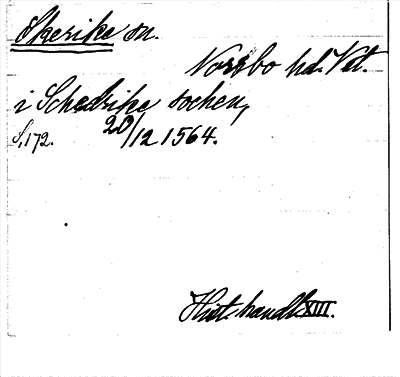 Skerike sn.
Norrbo hd. Vstm.
i Schedrike sochen,
S, 172. 20/12 1564.
Hist. handl. XIII.